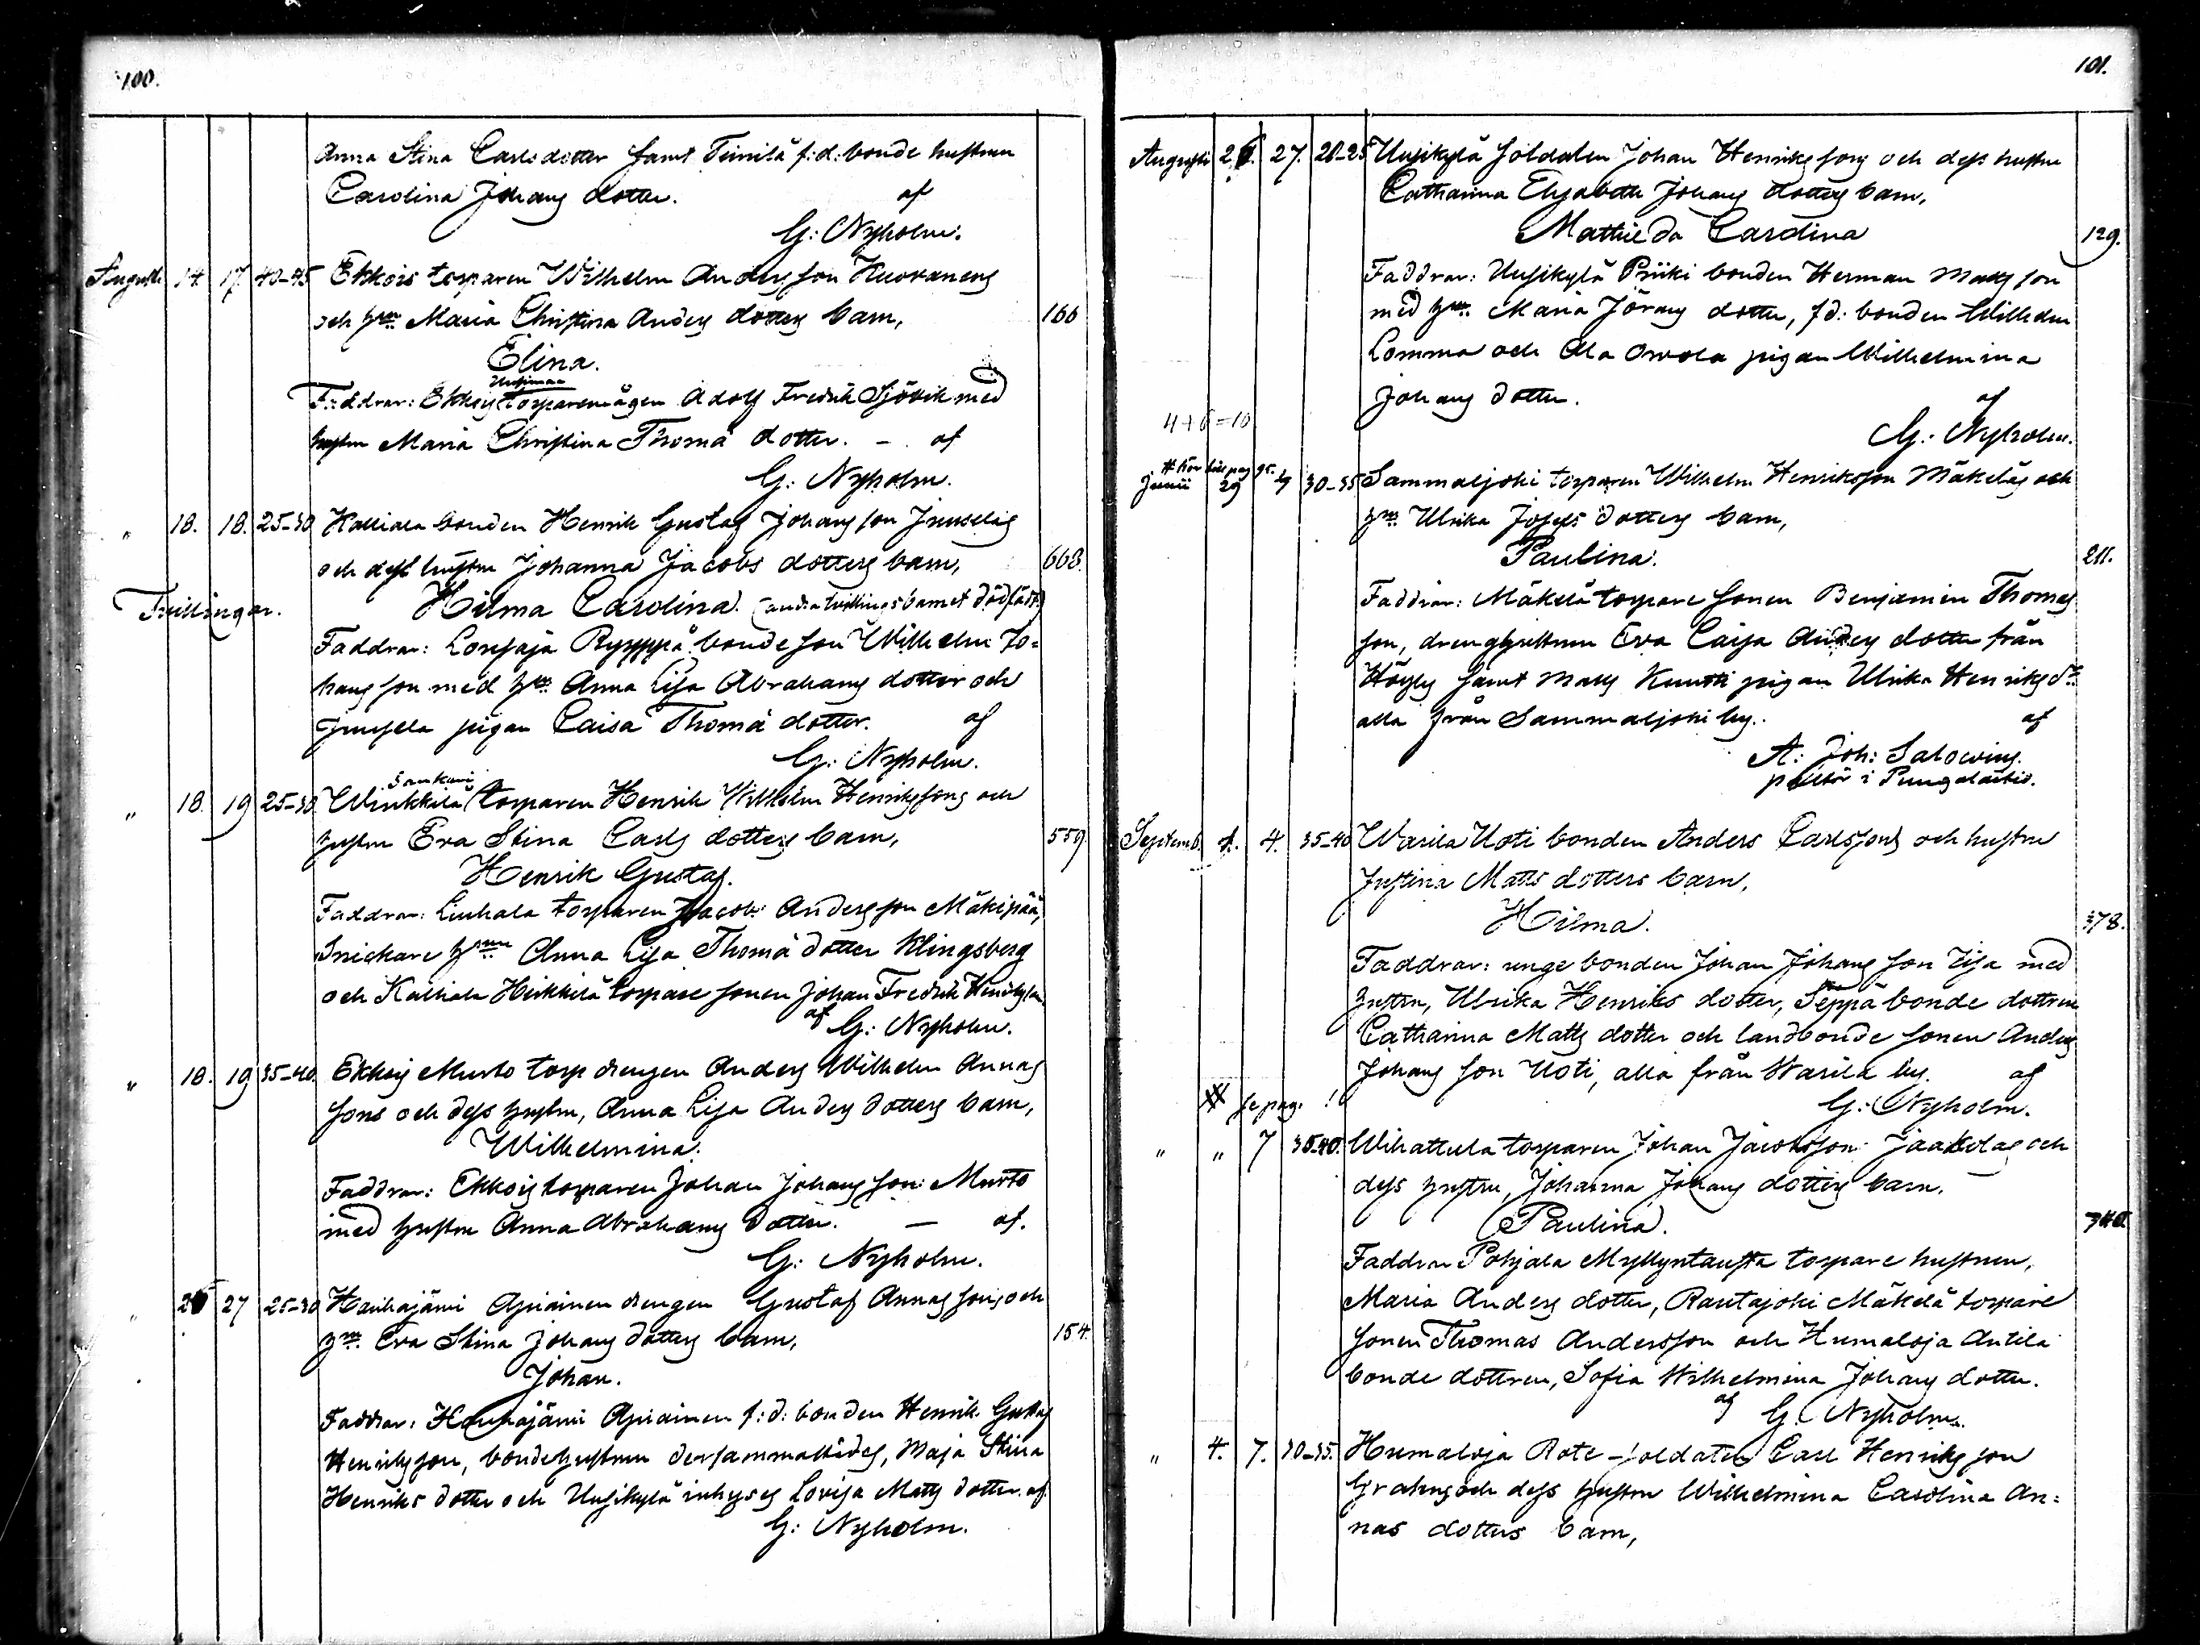 100.
Anna Stina Carlsdotter samt Teinilä f:d: bonde hustrun
Carolina Johans dotter. af
G: Nyholm.
Augusti 14 17 40-45 Ekkois torparen Wilhelm Anders son Kuovanens
och h:m Maria Christina Anders dotters barn, 166
Elina.
Faddrar: Ekkois torparemågen Adolf Fredrik Sjövik med
hustru Maria Christina Thomä dotter. - af
G: Nyholm.
" 18. 18. 25-30 Kalliala bonden Henrik Gustaf Johans son Junselas
och dess hustru Johanna Jacobs dotters barn, 668.
Tvillingar. Hilma Carolina. (andra tvillingsbarnet dödfödt.)
Faddrar: Lonsaja Ryssppä bonde son Wilhelm Jo=
hans son med h:u Anna Lisa Abrahams dotter och
Junsela pigan Caisa Thomä dotter. af
G: Nyholm.
Sankari
" 18. 19 25-30. Winkkilä torparen Henrik Wilhelm Henrikssons och
hustru Eva Stina Carls dotters barn, 559.
Henrik Gustaf.
Faddrar: Liuhala torparen Jacob Anders son Mäkipää,
Snickare h:un Anna Lisa Thomä dotter Klingsberg
och Kalliala Heikkilä torpare sonen Johan Fredrik Henriksson
af G: Nyholm.
" 18. 19 35-40. Ekkois Murto torp drengen Anders Wilhelm Annas
sons och dess hustru, Anna Lisa Anders dotters barn,
Wilhelmina.
Faddrar: Ekkois torparen Johan Johans son Murto
med hustru Anna Abrahams dotter. — af.
G: Nyholm.
" 26 27 25-30 Hauhajärvi Apiainen drengen Gustaf Annas sons och
h:u Eva Stina Johans dotters barn, 154.
Johan.
Faddrar: Hauhajärvi Apiainen f:d: bonden Henrik Gustaf
Henriksson, bondehustrun dersammastädes, Maja Stina
Henriks dotter och Uusikylä inhyses Lovisa Matts dotter. af
G: Nyholm.
101.
Augusti 26. 27. 20-25 Uusikylä soldaten Johan Henriks sons och dess hustru
Catharina Elisabeth Johans dotters barn,
Mathilda Carolina 129.
Faddrar: Uusikylä Priiki bonden Herman Matts son
med h:u Maria Jörans dotter, f.d: bonden Wilhelm
Lomma och Ala Orvola pigan Wilhelmina
Johans dotter. af
4+6=10
G: Nyholm.
# hör till pag 95.
Junii 29 4 30-35 Sammaljoki torparen Wilhelm Henriksson Mäkeläs och
h:u Ulrika Josefs dotters barn,
Paulina. 211.
Faddrar: Mäkelä torpare sonen Benjamin Thomas
son, drenghustrun Eva Caisa Anders dotter från
samt Matts Kuutti pigan Ulrika Henriks d:r
alla från Sammaljoki by. af
A: Joh: Salovius.
pastor i Pungalaitio.
Septemb. 1. 4. 35-40 Warila Uoti bonden Anders Carlssons och hustru
Justina Matts dotters barn,
Hilma. 378.
Faddrar: unge bonden Johan Johans son Uja med
hustru, Ulrika Henriks doter, Seppä bonde dottren
Catharina Matts dotter och landbonde sonen Anders
Johans son Uoti, alla från Warila by. af
# se pag. ! G: Nyholm.
" " 7 35-40. Wihattula torparen Johan Jacobsson Jaakolas och
dess hustru, Johanna Johans dotters barn.
Paulina. 340.
Faddrar Pohjala Myllyntausta torpare hustrun,
Maria Anders dotter, Rautajoki Mäkelä torpare
sonen Thomas Andersson och Humaloja Antila
bonde dottren, Sofia Wilhelmina Johans dotter.
af G: Nyholm.
" 4. 7. 30-35. Humaloja Rote-soldaten Carl Henriks son
Grahns och dess hustru Wilhelmina Carolina An=
nas dotters barn,